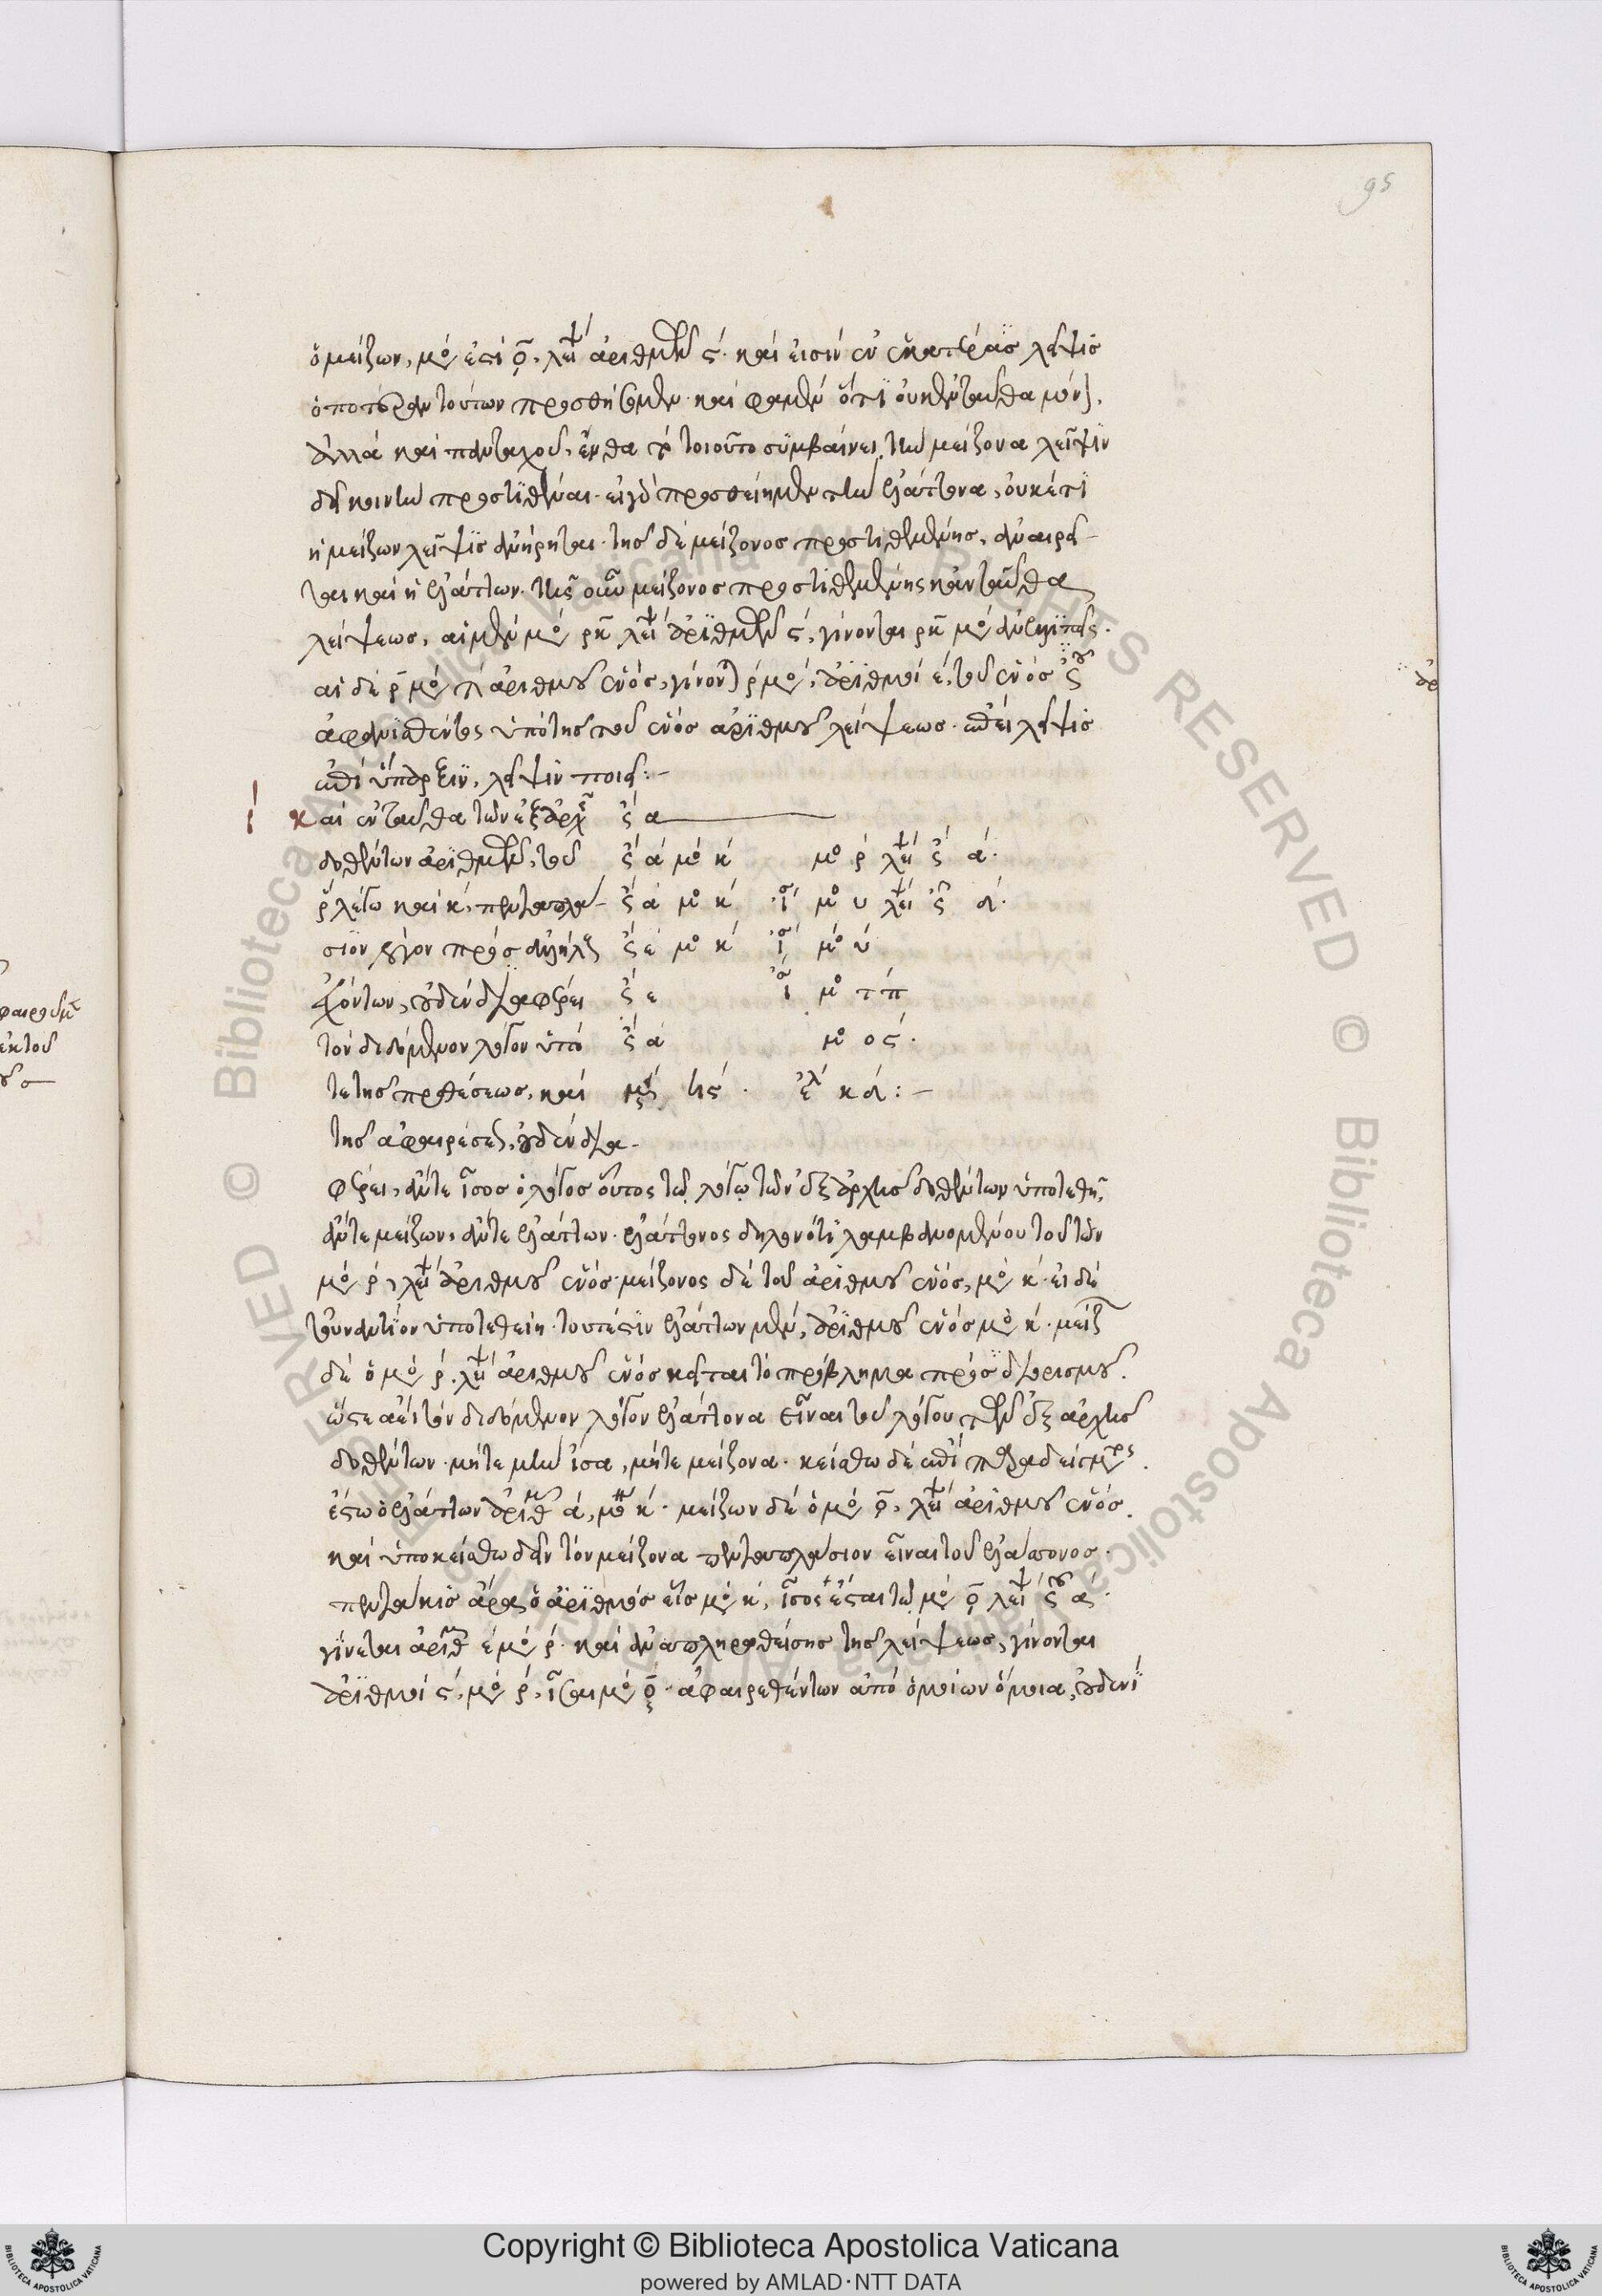 95
ὁ μείζων, μό ἐστὶ ρ, λεί ἀριθμῶν ς. καὶ εἰσὶν ἐν ἑκατέραις λείψις
ὁποτέραν τούτων προσθήσομεν. καὶ φαμὲν ὅτι οὐκ ἐνταῦθα μόν,
ἀλλὰ καὶ πανταχοῦ, ἔνθα τὸ τοιοῦτο συμβαίνει, τὴν μείζονα λεῖψιν
δεῖ κοινὴν προστιθέναι. εἰ γὰρ προσθείημεν τὴν ἐλάττονα, οὐκέτι
ἡ μείζων λεῖψις ἀνήρηται. τῆς δὲ μείζονος προστιθεμένης, ἀναιρεῖ-
ται καὶ ἡ ἐλάττων. τῆς οὖν μείζονος προστιθεμένης κἀνταῦθα
λείψεως, αἱ μὲν μό ρκ λεί ἀριθμῶν ς, γίνονται ρκ μό ἀνελλιπεῖς.
αἱ δὲ ρ μό π ἀριθμοῦ ἑνός, γίνον ρ μό, ἀριθμοὶ ε, τοῦ ἑνὸς ςου
ἀφανισθέντος ὑπὸ τῆς τοῦ ἑνὸς ἀριθμοῦ λείψεως. ἐπεὶ λεῖψις
ἐπὶ ὕπαρξιν, λεῖψιν ποιεῖ:-
ι καὶ ἐνταῦθα τῶν ἐξ ἀρχῆ ς α
δοθέντων ἀριθμῶν, τοῦ ς α μο κ μο ρ λεί ς α.
ρ λέγω καὶ κ, πενταπλα- ς α μο κ ἴ μο υ λεί ς δ.
σίον λόγον πρὸς ἀλλήλ ς ε μο κ ἴ μο υ
ἐχόντων, οὐδὲν διαφέρει ς ε ἴ μο τπ
τὸν διδόμενον λόγον ὑπό ς α μο ος.
τε τῆς προθέσεως, καὶ μξ ϟς. ἐλ κδ:-
τῆς ἀφαιρέσε, οὐδὲν δια-
φέρει, ἄντε ἴσος ὁ λόγος οὗτος τῷ λόγῳ τῶν ἐξ ἀρχῆς δοθέντων ὑποτεθῆ,
ἄντε μείζων, ἄντε ἐλάττων. ἐλάττονος δηλονότι λαμβανομένου τοῦ τῶν
μό ρ, λεί ἀριθμοῦ ἑνός. μείζονος δὲ τοῦ ἀριθμοῦ ἑνός, μό κ. εἰ δὲ
τοὐναντίον ὑποτεθείη. τουτέστιν ἐλάττων μὲν, ἀριθμοῦ ἑνὸς μό κ. μείζ
δὲ ὁ μό ρ. λεί ἀριθμοῦ ἑνὸς πρόβλημα προσδιορισμοῦ.
ὥστε ἀεὶ τὸν διδόμενον λόγον ἐλάττονα εἶναι τοῦ λόγου τῶν ἐξ ἀρχῆς
δοθέντων. μήτε μὴν ἴσα, μήτε μείζονα. κείσθω δὲ ἐπὶ
ἔστω ὁ ἐλάττων ἀριθμ α, μο κ. μείζων δὲ ὁ μό ρ, λεί ἀριθμοῦ ἑνός.
καὶ ὑποκείσθω δεῖν τὸν μείζονα πενταπλασίον εἶναι τοῦ ἐλάττονος.
πεντάκις ἄρα ὁ ἀριθμὸς εἷς μό κ, ἴσος ἔσται τῷ μό ρ λεί ςου α.
γίνεται ἀριθ ε μό ρ. καὶ ἀναπληρωθείσης τῆς λείψεως, γίνονται
ἀριθμοὶ ς, μό ρ, ἴσαι μό ρ. ἀφαιρεθέντων ἀπὸ ὁμοίων ὅμοια, οὐδενὶ
Copyright © Biblioteca Apostolica Vaticana
powered by AMLAD·NTT DATA